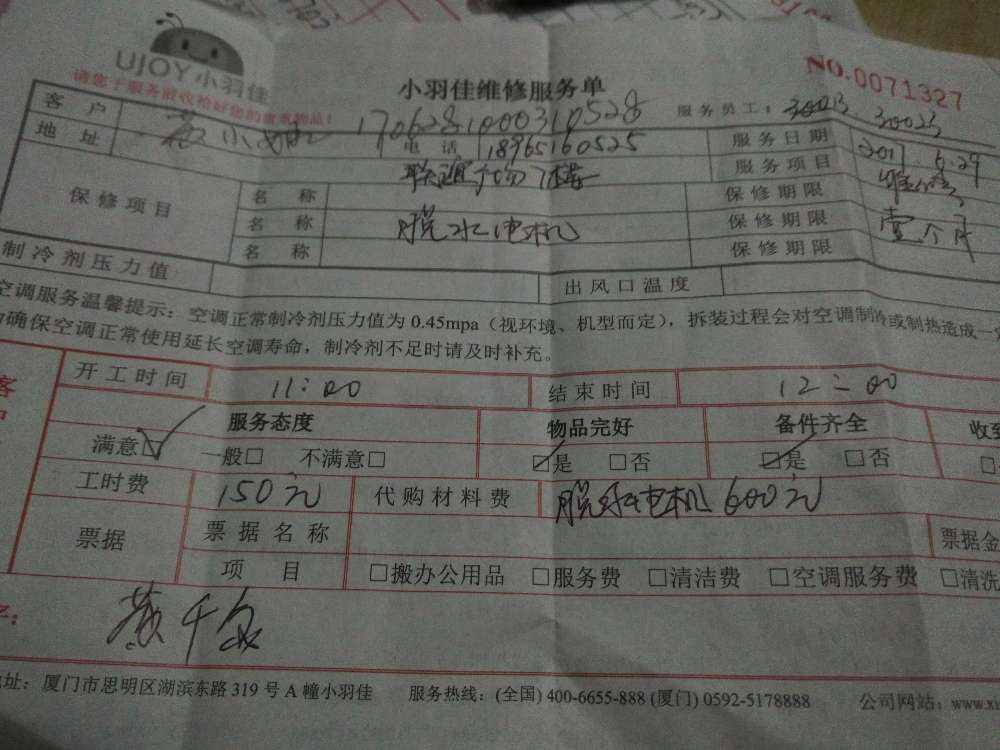 UJOY小羽佳
请您于服务前收拾好您的贵重物品!
小羽佳维修服务单
NO.0071327
客户 小姐 170628100310528 服务员工: 30023. 30023
地址 电话 18965160525 服务日期 2017.6.29
联通广场7楼 服务项目 维修
保修项目 名称 保修期限 壹个月
名称 脱水电机 保修期限
名称 保修期限
制冷剂压力值 出风口温度
空调服务温馨提示:空调正常制冷剂压力值为0.45mpa(视环境、机型而定),拆装过程会对空调制冷或制热造成一
确保空调正常使用延长空调寿命,制冷剂不足时请及时补充。
开工时间 11:00 结束时间 12:00
服务态度 物品完好 备件齐全 收到
满意☑ 一般□ 不满意□ ☑是 □否 ☑是 □否 □
工时费 150元 代购材料费 脱水电机600元
票据 票据名称 票据金
项目 □搬办公用品 □服务费 □清洁费 □空调服务费 □清洗
黄千
地址:厦门市思明区湖滨东路319号A幢小羽佳 服务热线:(全国)400-6655-888(厦门)0592-5178888 公司网站:www.xi